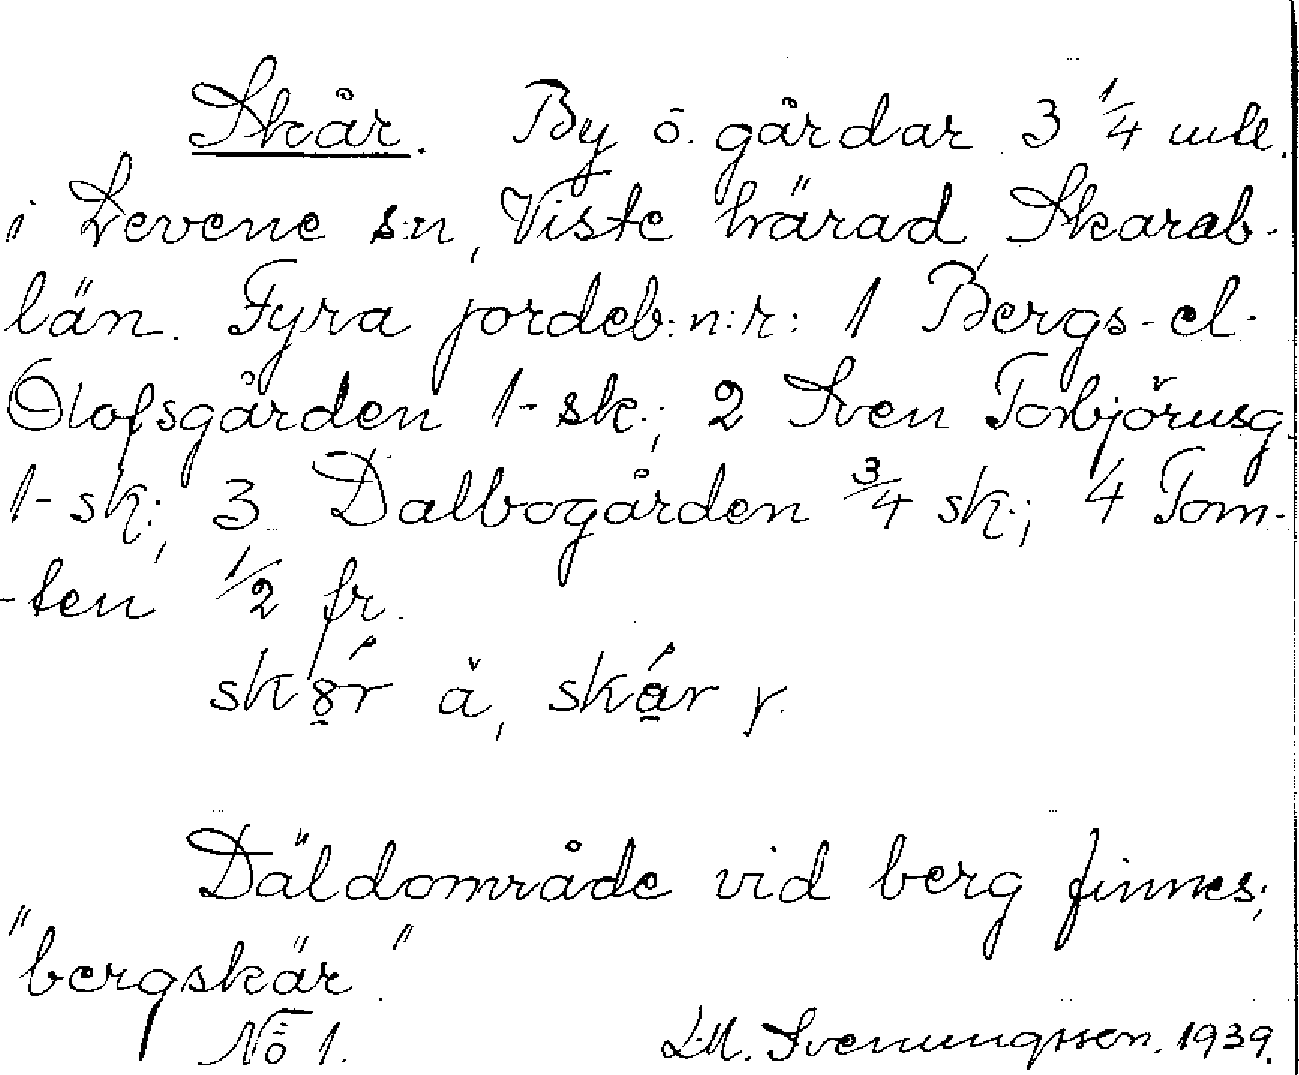 Skår. By o. gårdar 3 1/4 mtl.
i Levene s:n, Viste härad, Skarab-
län. Fyra jordeb:n:r: 1 Bergs- el.
Olofsgården 1-sk.; 2 Sven Torbjörnsg.
1-sk.; 3 Dalbogården 3/4 sk.; 4 Tom-
-ten 1/2 fr.
å, y.
Däldområde vid berg finnes;
"bergskär".
No 1. L.M. Svenungsson. 1939.